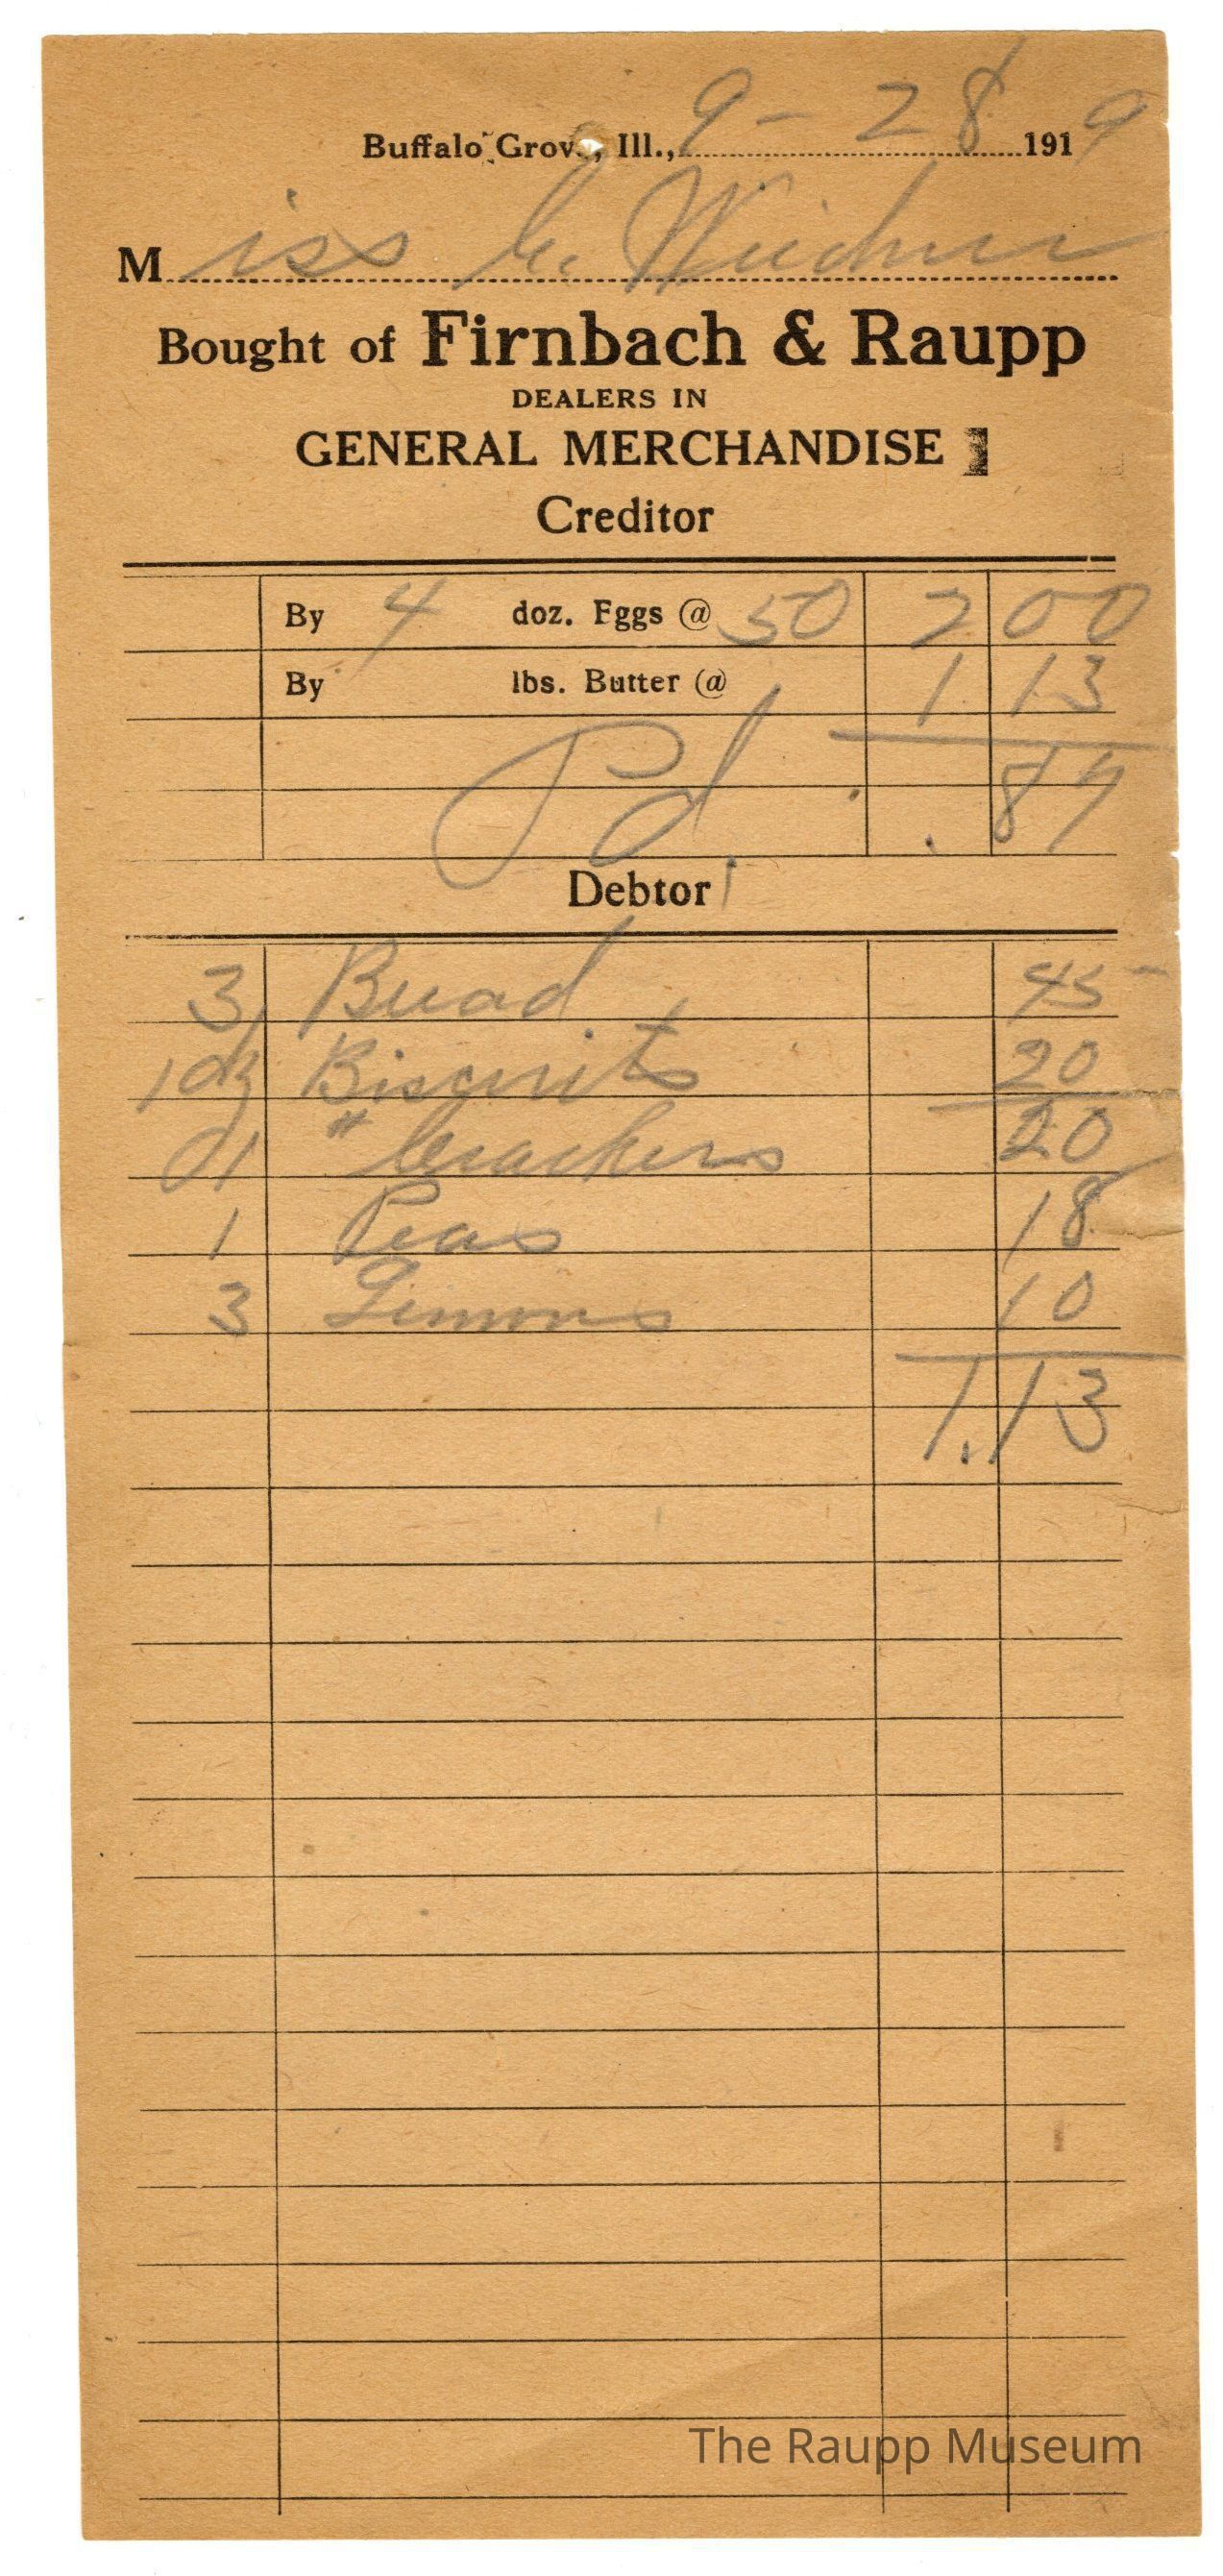 Buffalo Grov., Ill., 9 - 28 1919
Miss C. Weidner
Bought of Firnbach & Raupp
DEALERS IN
GENERAL MERCHANDISE
Creditor
By 4 doz. Eggs @ 50 2 00
By lbs. Butter @ 1 13
Pd. .87
Debtor
3 Bread 45
1 dz Biscuits 20
1 # Crackers 20
1 Peas 18
3 Lemons 10
1.13
The Raupp Museum